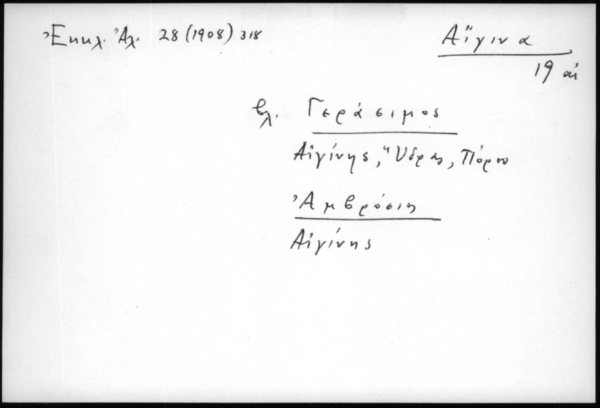 Ἐκκλ. Ἀλ. 28 (1908) 318
Αἴγινα
19 αἰ
βλ. Γεράσιμος
Αἰγίνης, Ὕδρας, Πόρου
Ἀμβρόσιος
Αἰγίνης